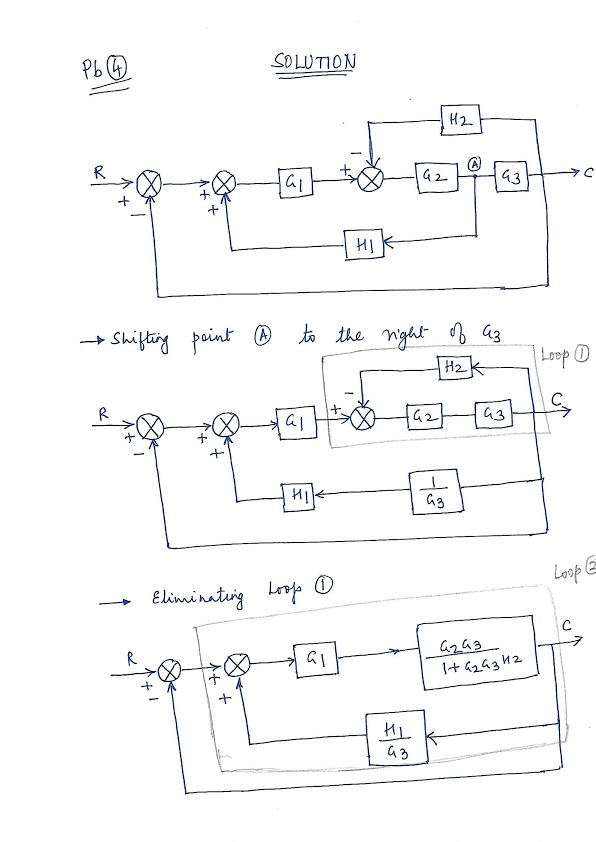 Pb ④ SOLUTION
H2
R + − + + G1 + − G2 Ⓐ G3 C
H1
→ Shifting point Ⓐ to the right of G3
Loop ①
H2
R + − + + G1 + − G2 G3 C
H1 1/G3
→ Eliminating Loop ①
Loop ②
R + − + + G1 G2G3/1+G2G3H2 C
H1/G3